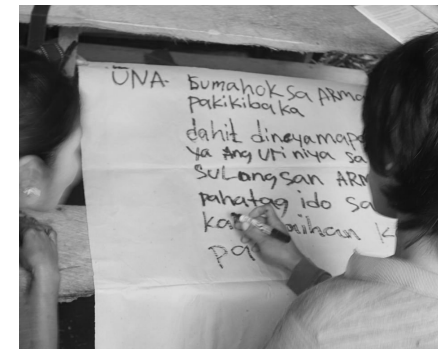 UNA- Lumahok sa ARMA
pakikibaka
dahil dineyamapa
ya Ang uri niya sa
SULongsan ARM
pahatag ido sa
ka aihan K
pa